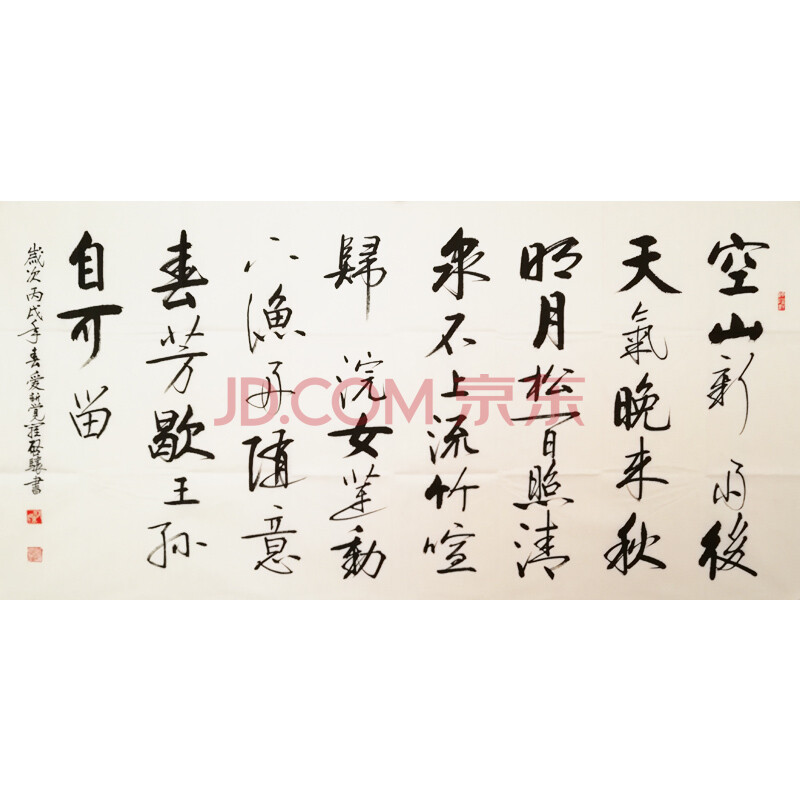 空山新雨後
天氣晚来秋
明月松間照清
泉石上流竹喧
歸浣女蓮動
下漁舟随意
春芳歇王孫
自可留
歲次丙戌年春愛新覺羅啟驤書
JD.COM 京东